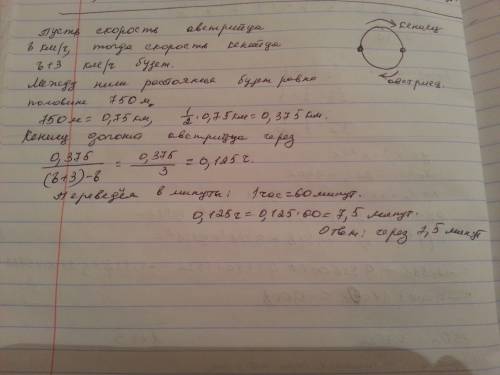 Пусть скорость австрийца
в км/ч, тогда скорость кенийца
в+3 км/ч будет.
Между ними расстояние будет равно
половине 750 м.
750 м = 0,75 км, 1/2 · 0,75 км = 0,375 км.
Кениец догонит австрийца через
0,375/((в+3)-в) = 0,375/3 = 0,125 ч.
Переведём в минуты: 1 час = 60 минут.
0,125 ч = 0,125 · 60 = 7,5 минут.
Ответ: через 7,5 минут
кениец
австриец